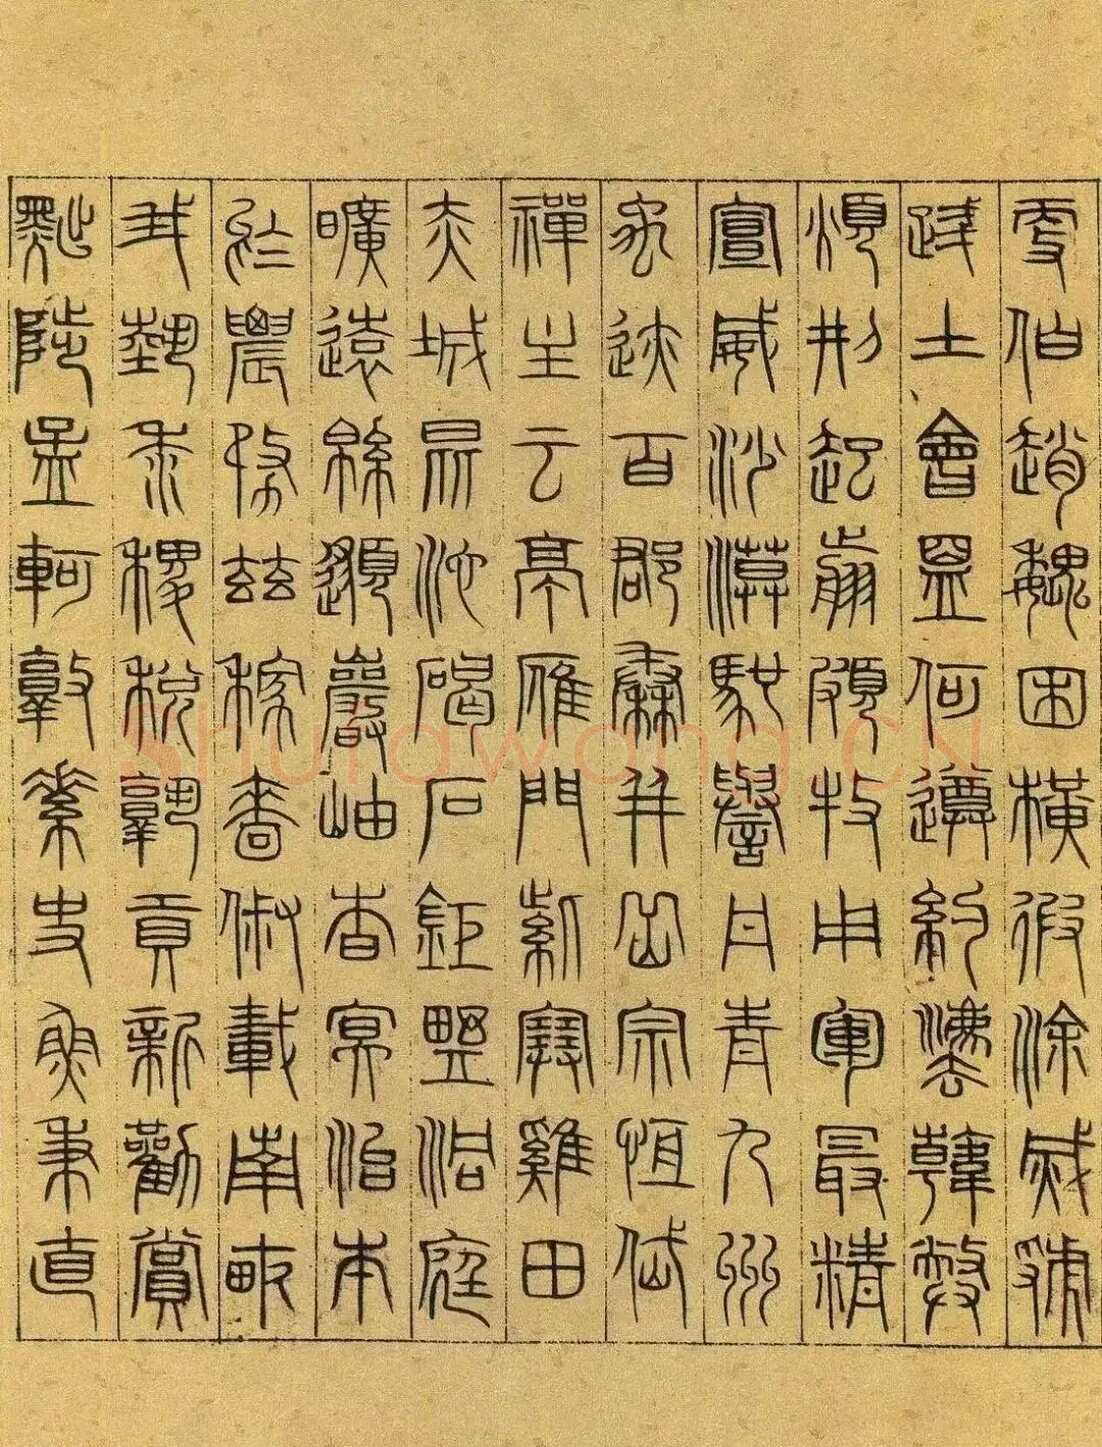 更伯趙魏困橫假涂滅虢
踐土會盟何遵約灋韓弊
煩刑起翦頗牧用軍最精
宣威沙漠馳譽丹青九州
禹迹百郡秦并岳宗恒岱
禪主云亭雁門紫塞雞田
赤城昆池碣石鉅野洞庭
曠遠綿邈巖岫杳冥治本
於農務茲稼穡俶載南畝
我藝黍稷稅孰貢新勸賞
黜陟孟軻敦素史魚秉直
Shufawang.CN